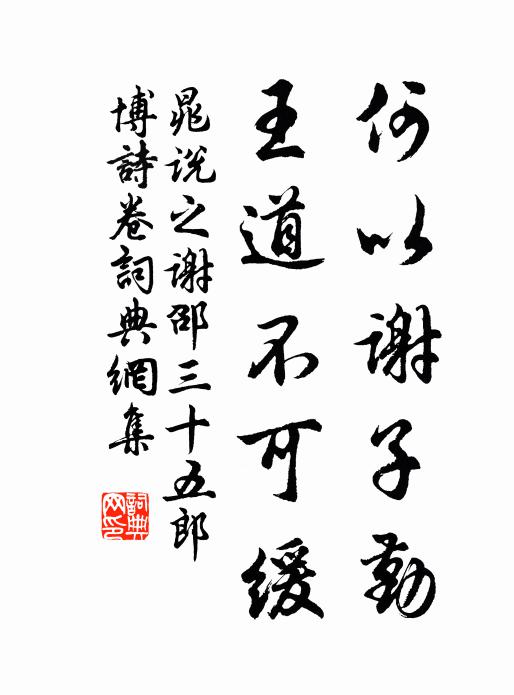 何以謝子勤
王道不可緩
晁说之謝邵三十五郎
博詩卷詞典網集
詞典
网印